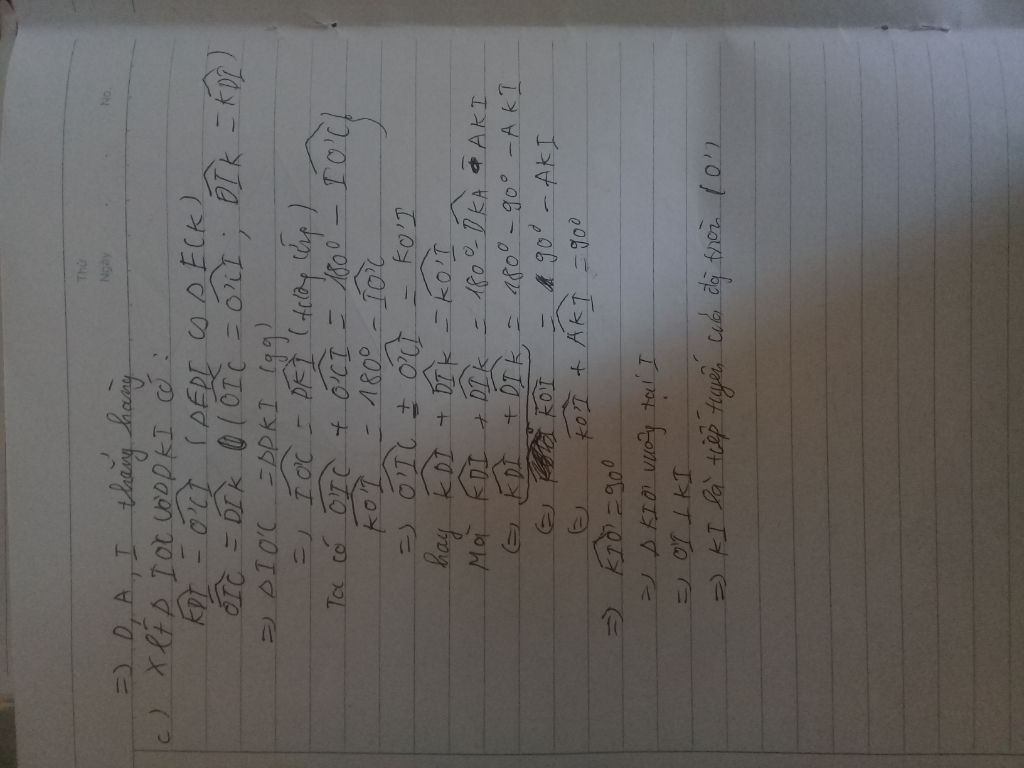 Thứ
Ngày No.
=) D, A, I thẳng hàng
c) Xét Δ IO'C và ΔDKI có:
KDI = O'CI (ΔEDI ∽ Δ ECK)
O'IC = DIK (O'IC = O'CI ; DIK = KDI)
=) Δ IO'C = ΔDKI (gg)
=) IO'C = DKI (tương ứng)
Ta có O'IC + O'CI = 180° - IO'C
KO'I = 180° - IO'C
=) O'IC + O'CI = KO'I
hay KDI + DIK = KO'I
Mà KDI + DIK = 180° - DKA - AKI
(=) KDI + DIK = 180° - 90° - AKI
(=) KO'I = 90° - AKI
(=) KO'I + AKI = 90°
=) KIO' = 90°
=) Δ KIO' vuông tại I
=) O'I ⊥ KI
=) KI là tiếp tuyến của độ tròn (O')